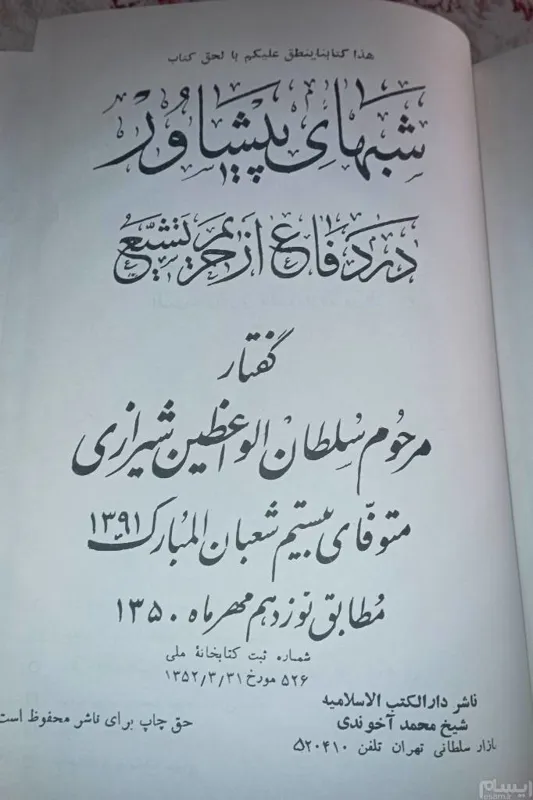 هذا کتابناینطق علیکم با لحق کتاب
شبهای پیشاور
در دفاع از حریم تشیع
گفتار
مرحوم سلطان الواعظین شیرازی
متوفّای بیستم شعبان المبارک ۱۳۹۱
مطابق نوزدهم مهر ماه ۱۳۵۰
شماره ثبت کتابخانهٔ ملی
۵۲۶ مورخ ۱۳۵۲/۳/۳۱
ناشر دارالکتب الاسلامیه
شیخ محمد آخوندی
بازار سلطانی تهران تلفن ۵۲۰۴۱۰
حق چاپ برای ناشر محفوظ است
ایسام
esam.ir